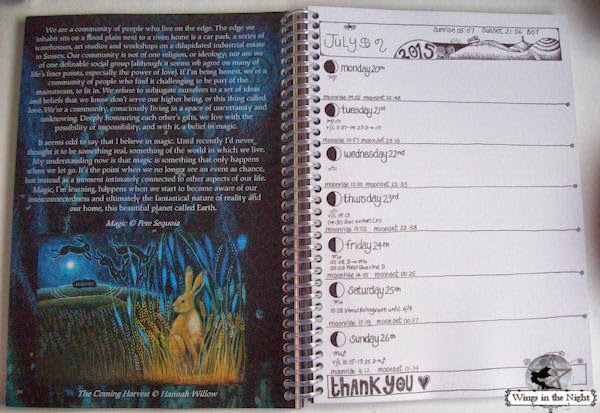 We are a community of people who live on the edge. The edge we
inhabit sits on a flood plain next to a river; home is a car park, a series of
warehouses, art studios and workshops on a dilapidated industrial estate
in Sussex. Our community is not of one religion, or ideology; nor are we
of one definable social group (although it seems we agree on many of
life's finer points, especially the power of love). If I'm being honest, we're a
community of people who find it challenging to be part of the
mainstream, to fit in. We refuse to subjugate ourselves to a set of ideas
and beliefs that we know don't serve our higher being, or this thing called
love. We're a community, consciously living in a space of uncertainty and
unknowing. Deeply honouring each other's gifts, we live with the
possibility of impossibility, and with it, a belief in magic.
It seems odd to say that I believe in magic. Until recently I'd never
thought it to be something real, something of the world in which we live.
My understanding now is that magic is something that only happens
when we let go. It's the point when we no longer see an event as chance,
but instead as a moment intimately connected to other aspects of our life.
Magic, I'm learning, happens when we start to become aware of our
interconnectedness and ultimately the fantastical nature of reality and
our home, this beautiful planet called Earth.
Magic © Pete Sequoia
The Coming Harvest © Hannah Willow
JULY
2015
Sunrise 05:07 Sunset 21:06 BST
monday 20th
moonrise 09:55 moonset 22:48
tuesday 21st
moonrise 10:57 moonset 23:10
wednesday 22nd
moonrise 12:00 moonset 23:33
thursday 23rd
v/c 19:13
04:30 Sun enters Leo
moonrise 13:02 moonset 23:58
friday 24th
moonrise 14:05 moonset 00:25
saturday 25th
10:28 Venus Retrograde until 6/9
moonrise 15:09 moonset 00:57
sunday 26th
moonrise 16:12 moonset 01:34
thank you
Wings in the Night